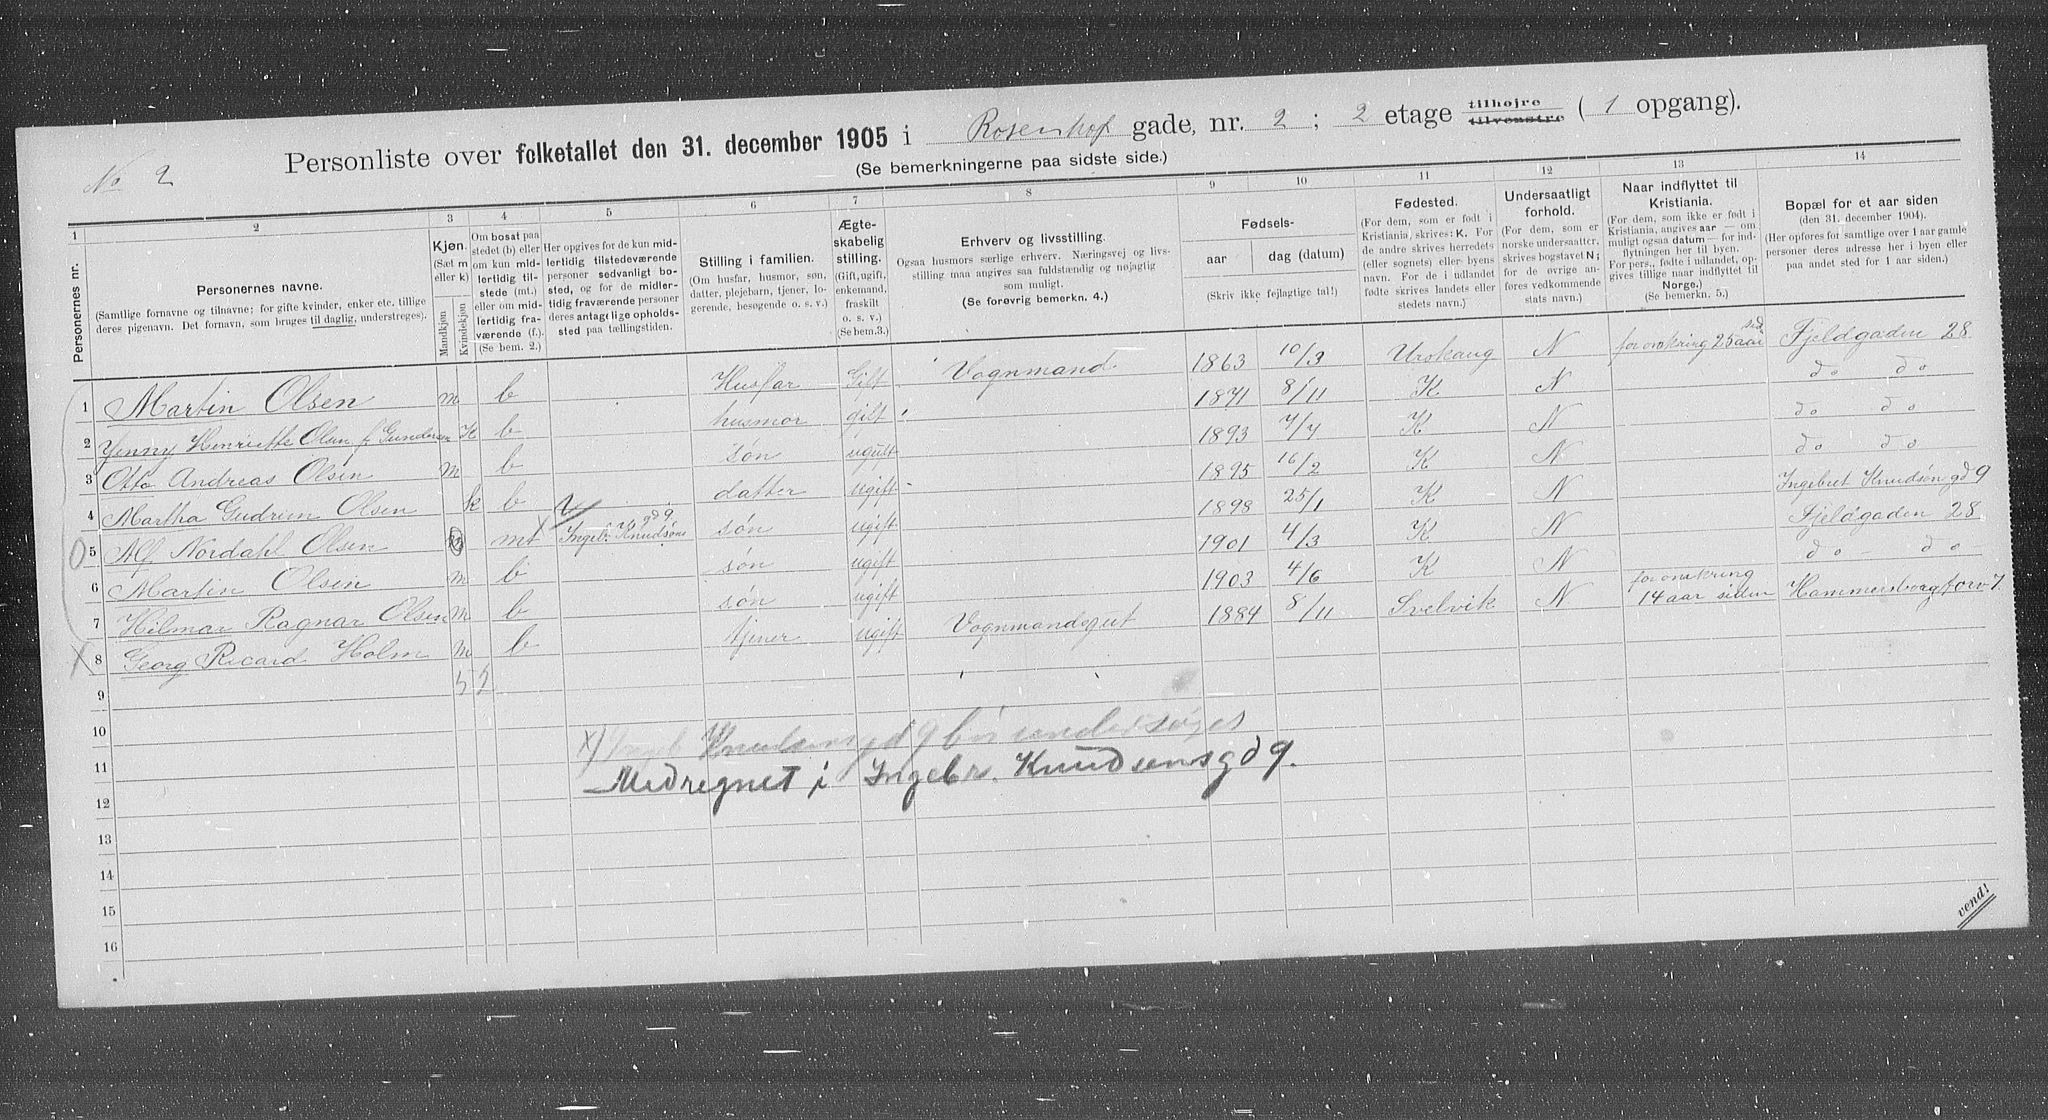 No 2
Personliste over folketallet den 31. december 1905 i Rosenhof gade, nr. 2 ; 2 etage tilhøjre tilvenstre ( 1 opgang).
(Se bemerkningerne paa sidste side.)
1 2 3 4 5 6 7 8 9 10 11 12 13 14
Personernes nr.
Personernes navne.
(Samtlige fornavne og tilnavne; for gifte kvinder, enker etc. tillige
deres pigenavn. Det fornavn, som bruges til daglig, understreges).
Kjøn.
(Sæt m
eller k)
Mandkjøn
Kvindekjøn
Om bosat paa
stedet (b) eller
om kun mid-
lertidig til-
stede (mt.)
eller om mid-
lertidig fra-
værende (f.).
(Se bem. 2.)
Her opgives for de kun mid-
lertidig tilstedeværende
personer sedvanligt bo-
sted, og for de midler-
tidig fraværende personer
deres antagelige opholds-
sted paa tællingstiden.
Stilling i familien.
(Om husfar, husmor, søn,
datter, plejebarn, tjener, lo-
gerende, besøgende o. s. v.)
Ægte-
skabelig
stilling.
(Gift, ugift,
enkemand,
fraskilt
o. s. v.)
(Se bem.3.)
Erhverv og livsstilling.
Ogsaa husmors særlige erhverv. Næringsvej og livs-
stilling maa angives saa fuldstændig og nøjagtig
som muligt.
(Se forøvrig bemerkn. 4.)
Fødsels-
aar
dag (datum)
(Skriv ikke fejlagtige tal!)
Fødested.
(For dem, som er født i
Kristiania, skrives: K. For
de andre skrives herredets
(eller sognets) eller byens
navn. For de i udlandet
fødte skrives landets eller
stedets navn.)
Undersaatligt
forhold.
(For dem, som er
norske undersaatter,
skrives bogstavet N;
for de øvrige an-
føres vedkommende
stats navn.)
Naar indflyttet til
Kristiania.
(For dem, som ikke er født i
Kristiania, angives aar — om
muligt ogsaa datum — for ind-
flytningen her til byen.
For pers., fødte i udlandet, op-
gives tillige naar indflyttet til
Norge.)
(Se bemerkn. 5.)
Bopæl for et aar siden
(den 31. december 1904).
(Her opføres for samtlige over 1 aar gamle
personer deres adresse her i byen eller
paa andet sted for 1 aar siden.)
1 Martin Olsen m b Husfar Gift Vognmand. 1863 10/3 Urskaug N for omkring 25 aar sid Fjeldgaden 28
2 Yenny Henriette Olsen f Gundersen K b husmor gift 1871 8/11 K N do do
3 Otto Andreas Olsen m b søn ugift 1893 7/7 K N do do
4 Martha Gudrun Olsen k b datter ugift 1895 16/2 K N do do
5 Alf Nordahl Olsen mt Ingebr. Knudsøns gd 9. søn ugift 1898 25/1 K N Ingebret Knudsøn gd 9
6 Martin Olsen m b søn ugift 1901 4/3 K N Fjeldgaden 28
7 Hilmar Ragnar Olsen m b søn ugift 1903 4/6 K N do — do
X 8 Georg Ricard Holm m b tjener ugift Vognmandsgut 1884 8/11 Svelvik N for omkring 14 aar siden Hammersborg torv 7
9 5 5
10
X) Ingeb Knudsens gd 9 bør undersøges
11
Medregnet i Ingebr. Knudsensgd 9.
12
13
14
15
16
vend!